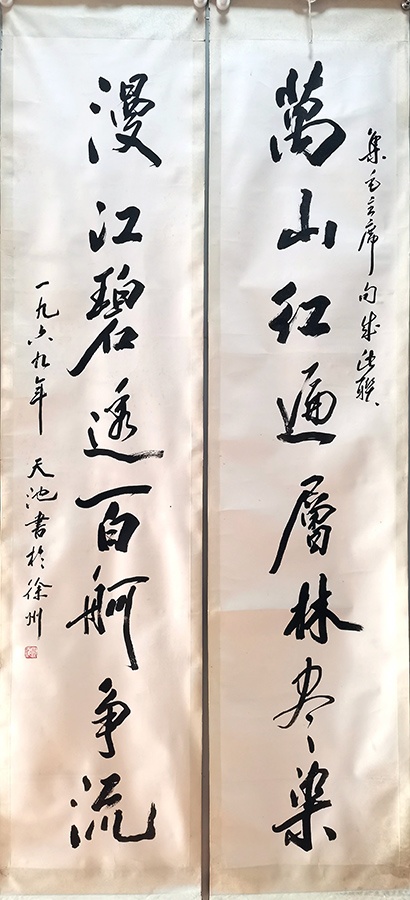 集毛主席句成此联
萬山红遍層林尽染
漫江碧透百舸争流
一九六九年 天池書於徐州